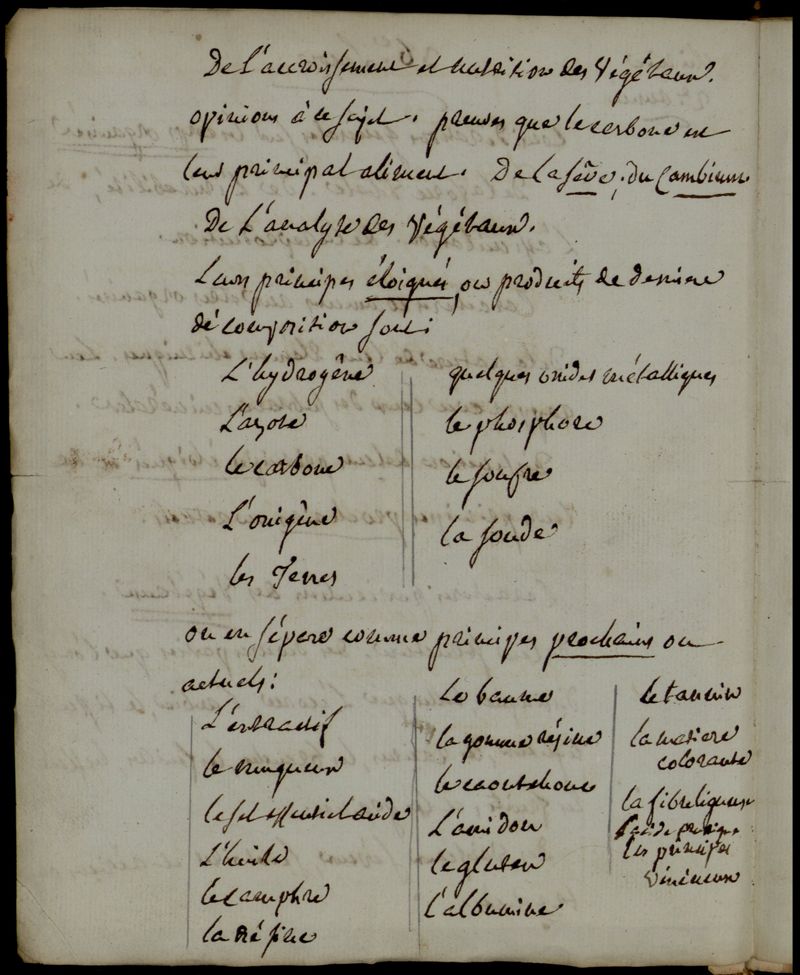 De l'accroissement et nutrition des Végétaux.
opinions à ce sujet. preuves que le carbone est
leur principal aliment. De la sève, du Cambium
De l'analyse des Végétaux.
Leurs principes éloignés, ou produits de derniere
décomposition sont:
L'hydrogêne
L'azote
le carbone
L'oxigêne
les Terres
quelques oxides métalliques
le phosphore
le soufre
la soude
on en sépare comme principes prochains ou
actuels:
L'extractif
le muqueux
le sel essentiel acide
L'huile
le camphre
la résine
Le baume
la gomme résine
le caoutchouc
L'amidon
le gluten
L'albumine
le tannin
la matiere
colorante
la fibre ligneuse
L'acide prussique
les principes
vénéneux